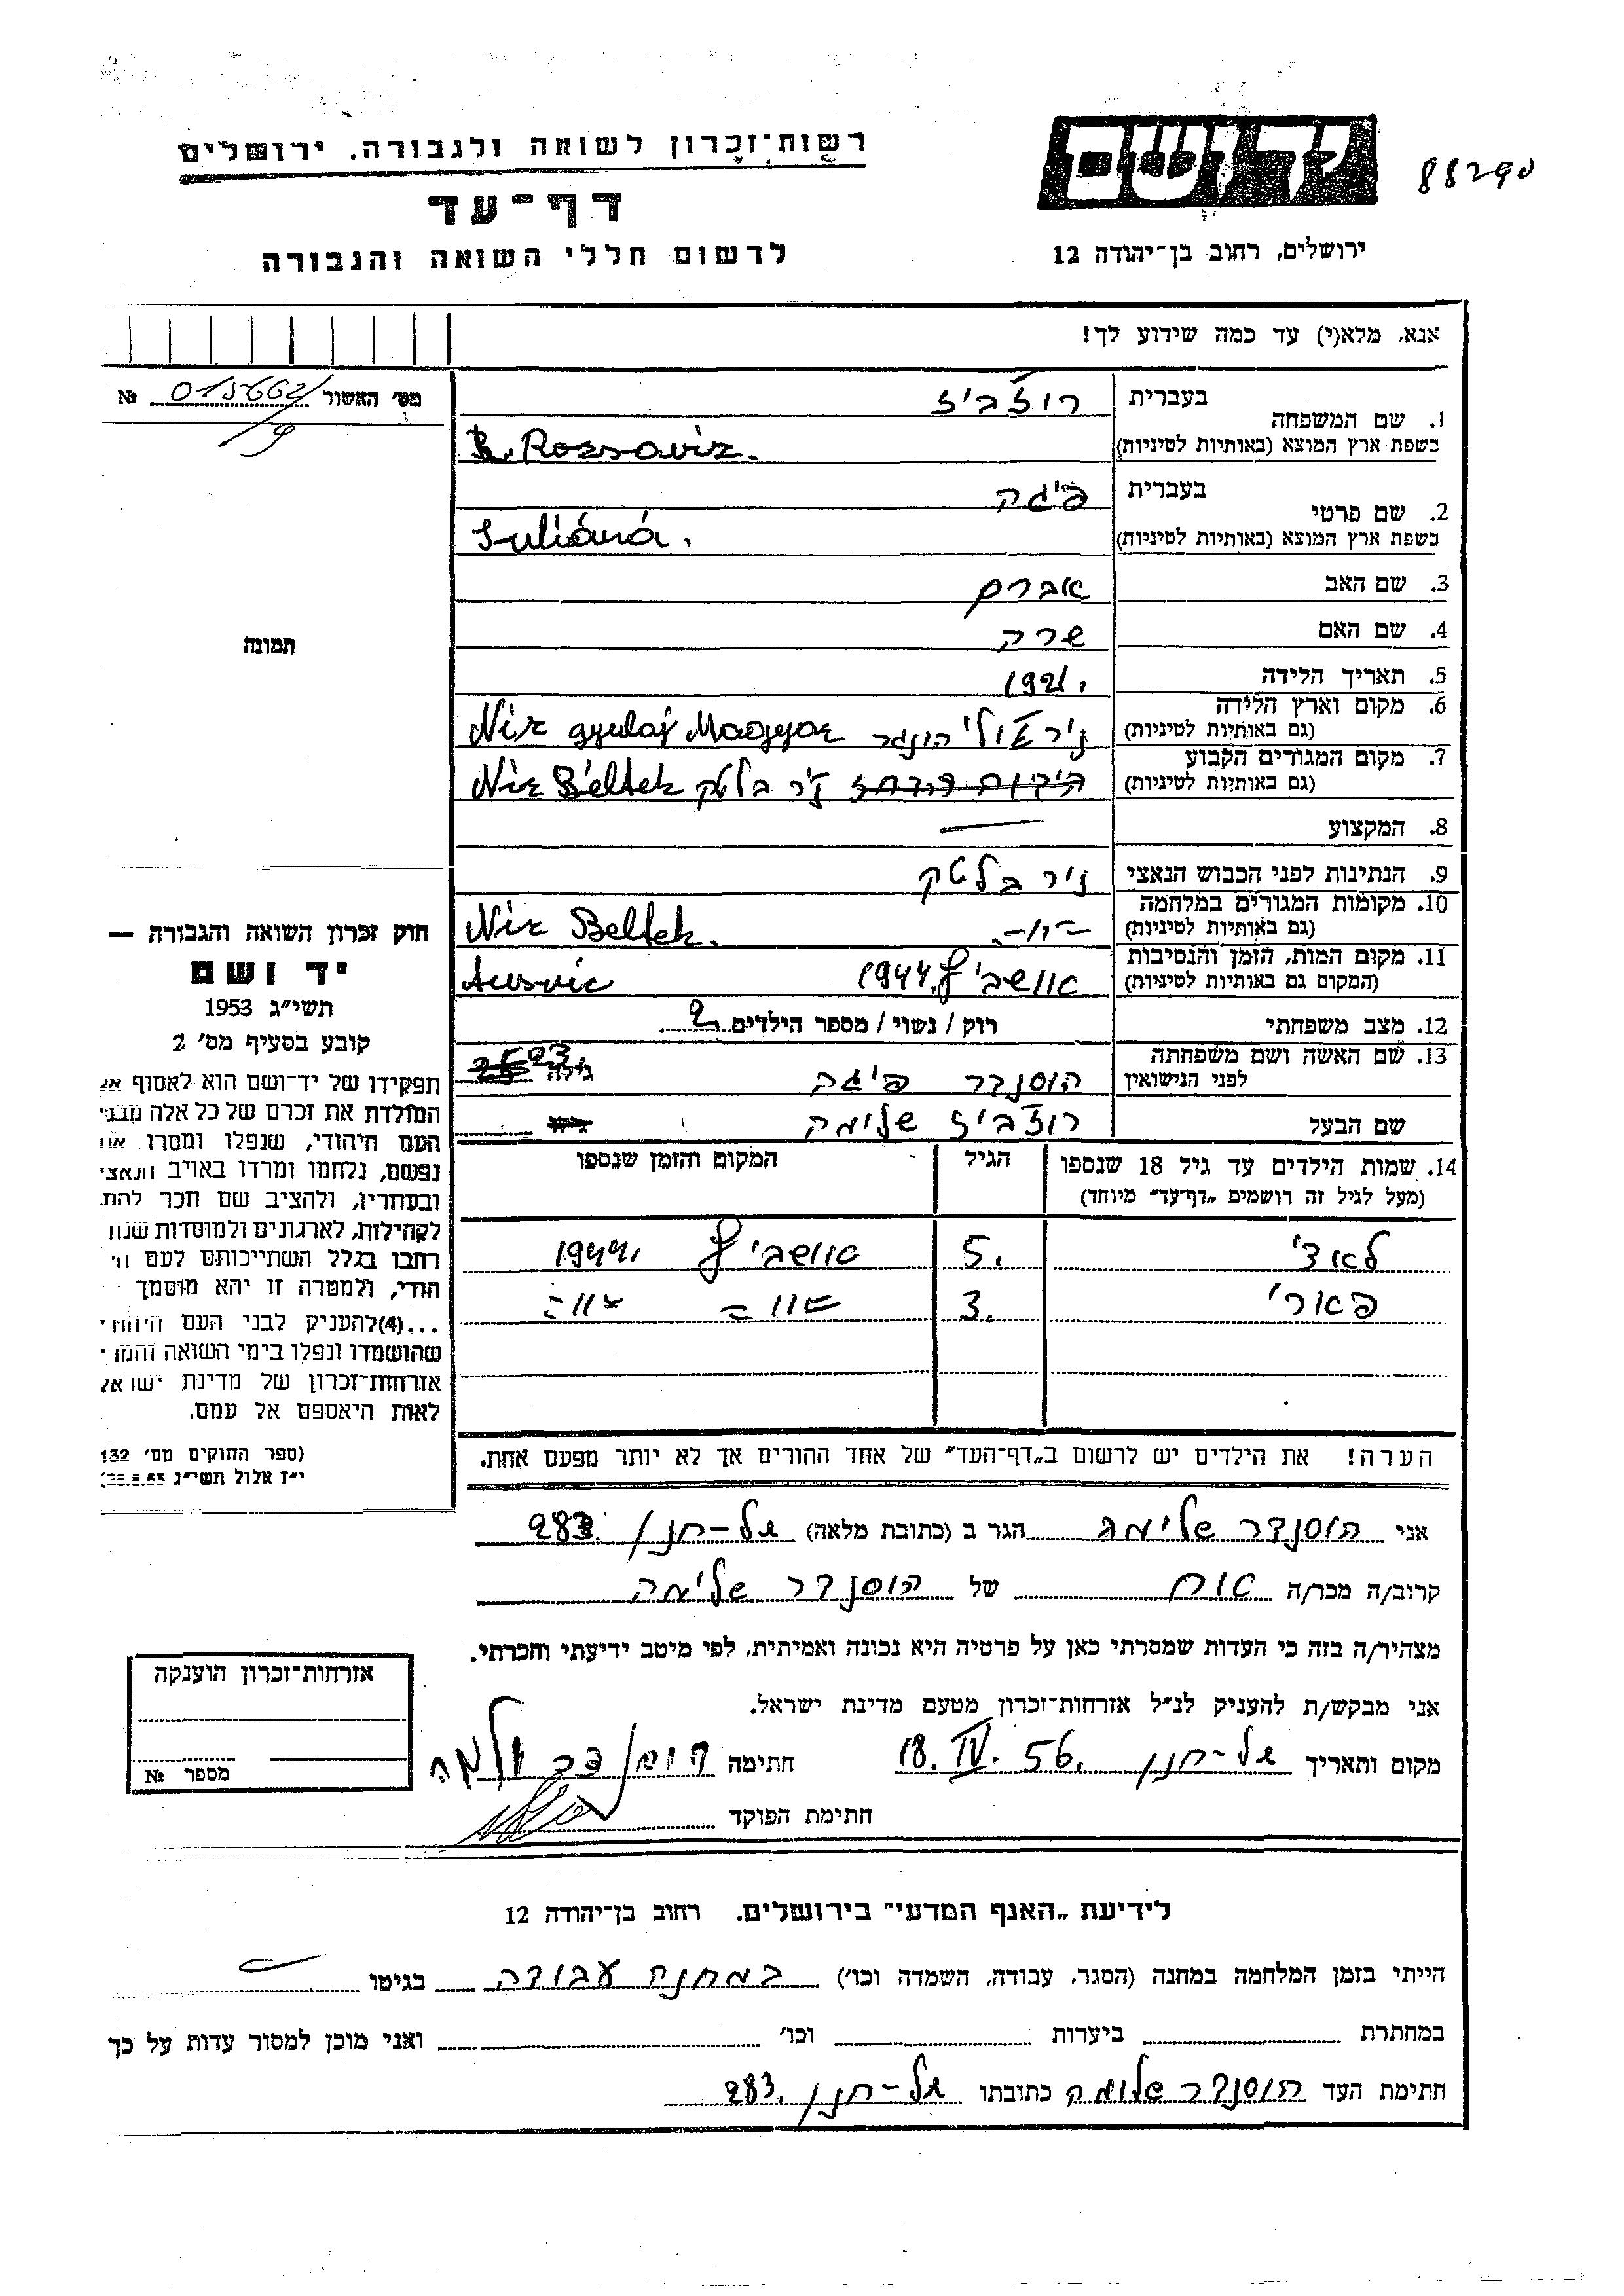 רשות־זכרון לשואה ולגבורה, ירושלים
דף־עד
לרשום חללי השואה והגבורה
יד ושם
88290
ירושלים, רחוב בן־יהודה 12
אנא, מלא(י) עד כמה שידוע לך!
מס׳ האשור 015662/ №
9
תמונה
חוק זכרון השואה והגבורה —
יד ושם
תשי״ג 1953
קובע בסעיף מס׳ 2
תפקידו של יד־ושם הוא לאסוף אל
המולדת את זכרם של כל אלה מבני
העם היהודי, שנפלו ומסרו את
נפשם, נלחמו ומרדו באויב הנאצי
ובעוזריו, ולהציב שם וזכר להם,
לקהילות, לארגונים ולמוסדות שנח
רחבו בגלל השתייכותם לעם הי
הודי, ולמטרה זו יהא מוסמך
...(4)להעניק לבני העם היהודי
שהושמדו ונפלו בימי השואה והמרי
אזרחות־זכרון של מדינת ישראל
לאות היאספם אל עמם.
(ספר החוקים מס׳ 132
י״ז אלול תשי״ג 28.8.53)
1. שם המשפחה
בעברית רוז׳ביז
בשפת ארץ המוצא (באותיות לטיניות) Rozsaviz.
2. שם פרטי
בעברית פיגה
בשפת ארץ המוצא (באותיות לטיניות) Juliáná.
3. שם האב אברם
4. שם האם שרה
5. תאריך הלידה 1921.
6. מקום וארץ הלידה
(גם באותיות לטיניות) ניר גולי הונגר Nir gyulaj Magyar
7. מקום המגורים הקבוע
(גם באותיות לטיניות) ניר בלטק Nir Béltek
8. המקצוע —
9. הנתינות לפני הכבוש הנאצי ניר בלטק
10. מקומות המגורים במלחמה
(גם באותיות לטיניות) Nir Beltek.
11. מקום המות, הזמן והנסיבות
(המקום גם באותיות לטיניות) אושביץ 1944. Ausvic
12. מצב משפחתי רוק / נשוי / מספר הילדים 2.
13. שם האשה ושם משפחתה
לפני הנישואין הוסנדר פיגה גילה 23
שם הבעל רוז׳ביז שלימה
14. שמות הילדים עד גיל 18 שנספו
(מעל לגיל זה רושמים „דף־עד״ מיוחד)
הגיל
המקום והזמן שנספו
לאצי 5. אושביץ 1944.
פארי 3.
הערה! את הילדים יש לרשום ב„דף־העד״ של אחד ההורים אך לא יותר מפעם אחת.
אני הוסנדר שלימה הגר ב (כתובת מלאה) אל-חנן 283.
קרוב/ה מכר/ה אח של הוסנדר שלימה
מצהיר/ה בזה כי העדות שמסרתי כאן על פרטיה היא נכונה ואמיתית, לפי מיטב ידיעתי והכרתי.
אני מבקש/ת להעניק לנ״ל אזרחות־זכרון מטעם מדינת ישראל.
מקום ותאריך אל-חנן 18. IV. 56. חתימה הוסנדר שלמה
חתימת הפוקד
אזרחות־זכרון הוענקה
מספר №
לידיעת „האגף המדעי״ בירושלים, רחוב בן־יהודה 12
הייתי בזמן המלחמה במחנה (הסגר, עבודה, השמדה וכו׳) במחנה עבודה בגיטו
במחתרת ביערות וכו׳ ואני מוכן למסור עדות על כך
חתימת העד הוסנדר שלומה כתובתו אל-חנן 283.